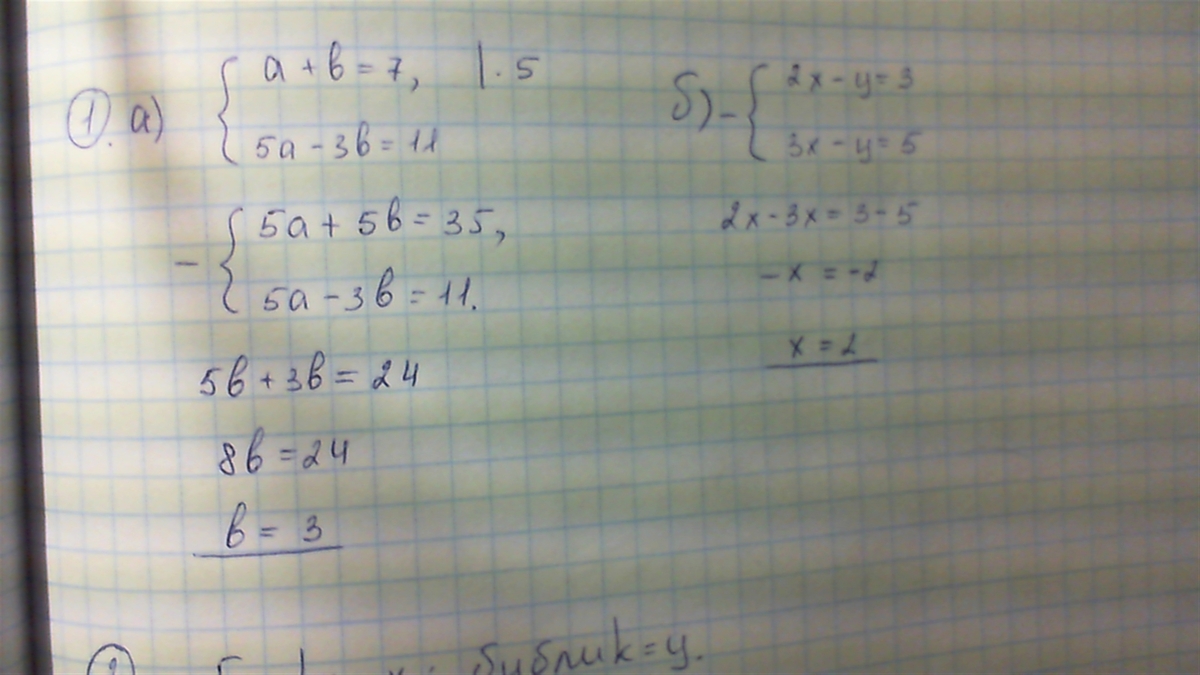 1. а) a + b = 7, | · 5
5a - 3b = 11
- 5a + 5b = 35,
5a - 3b = 11.
5b + 3b = 24
8b = 24
b = 3
б) - 2x - y = 3
3x - y = 5
2x - 3x = 3 - 5
- x = -2
x = 2
бублик = y.